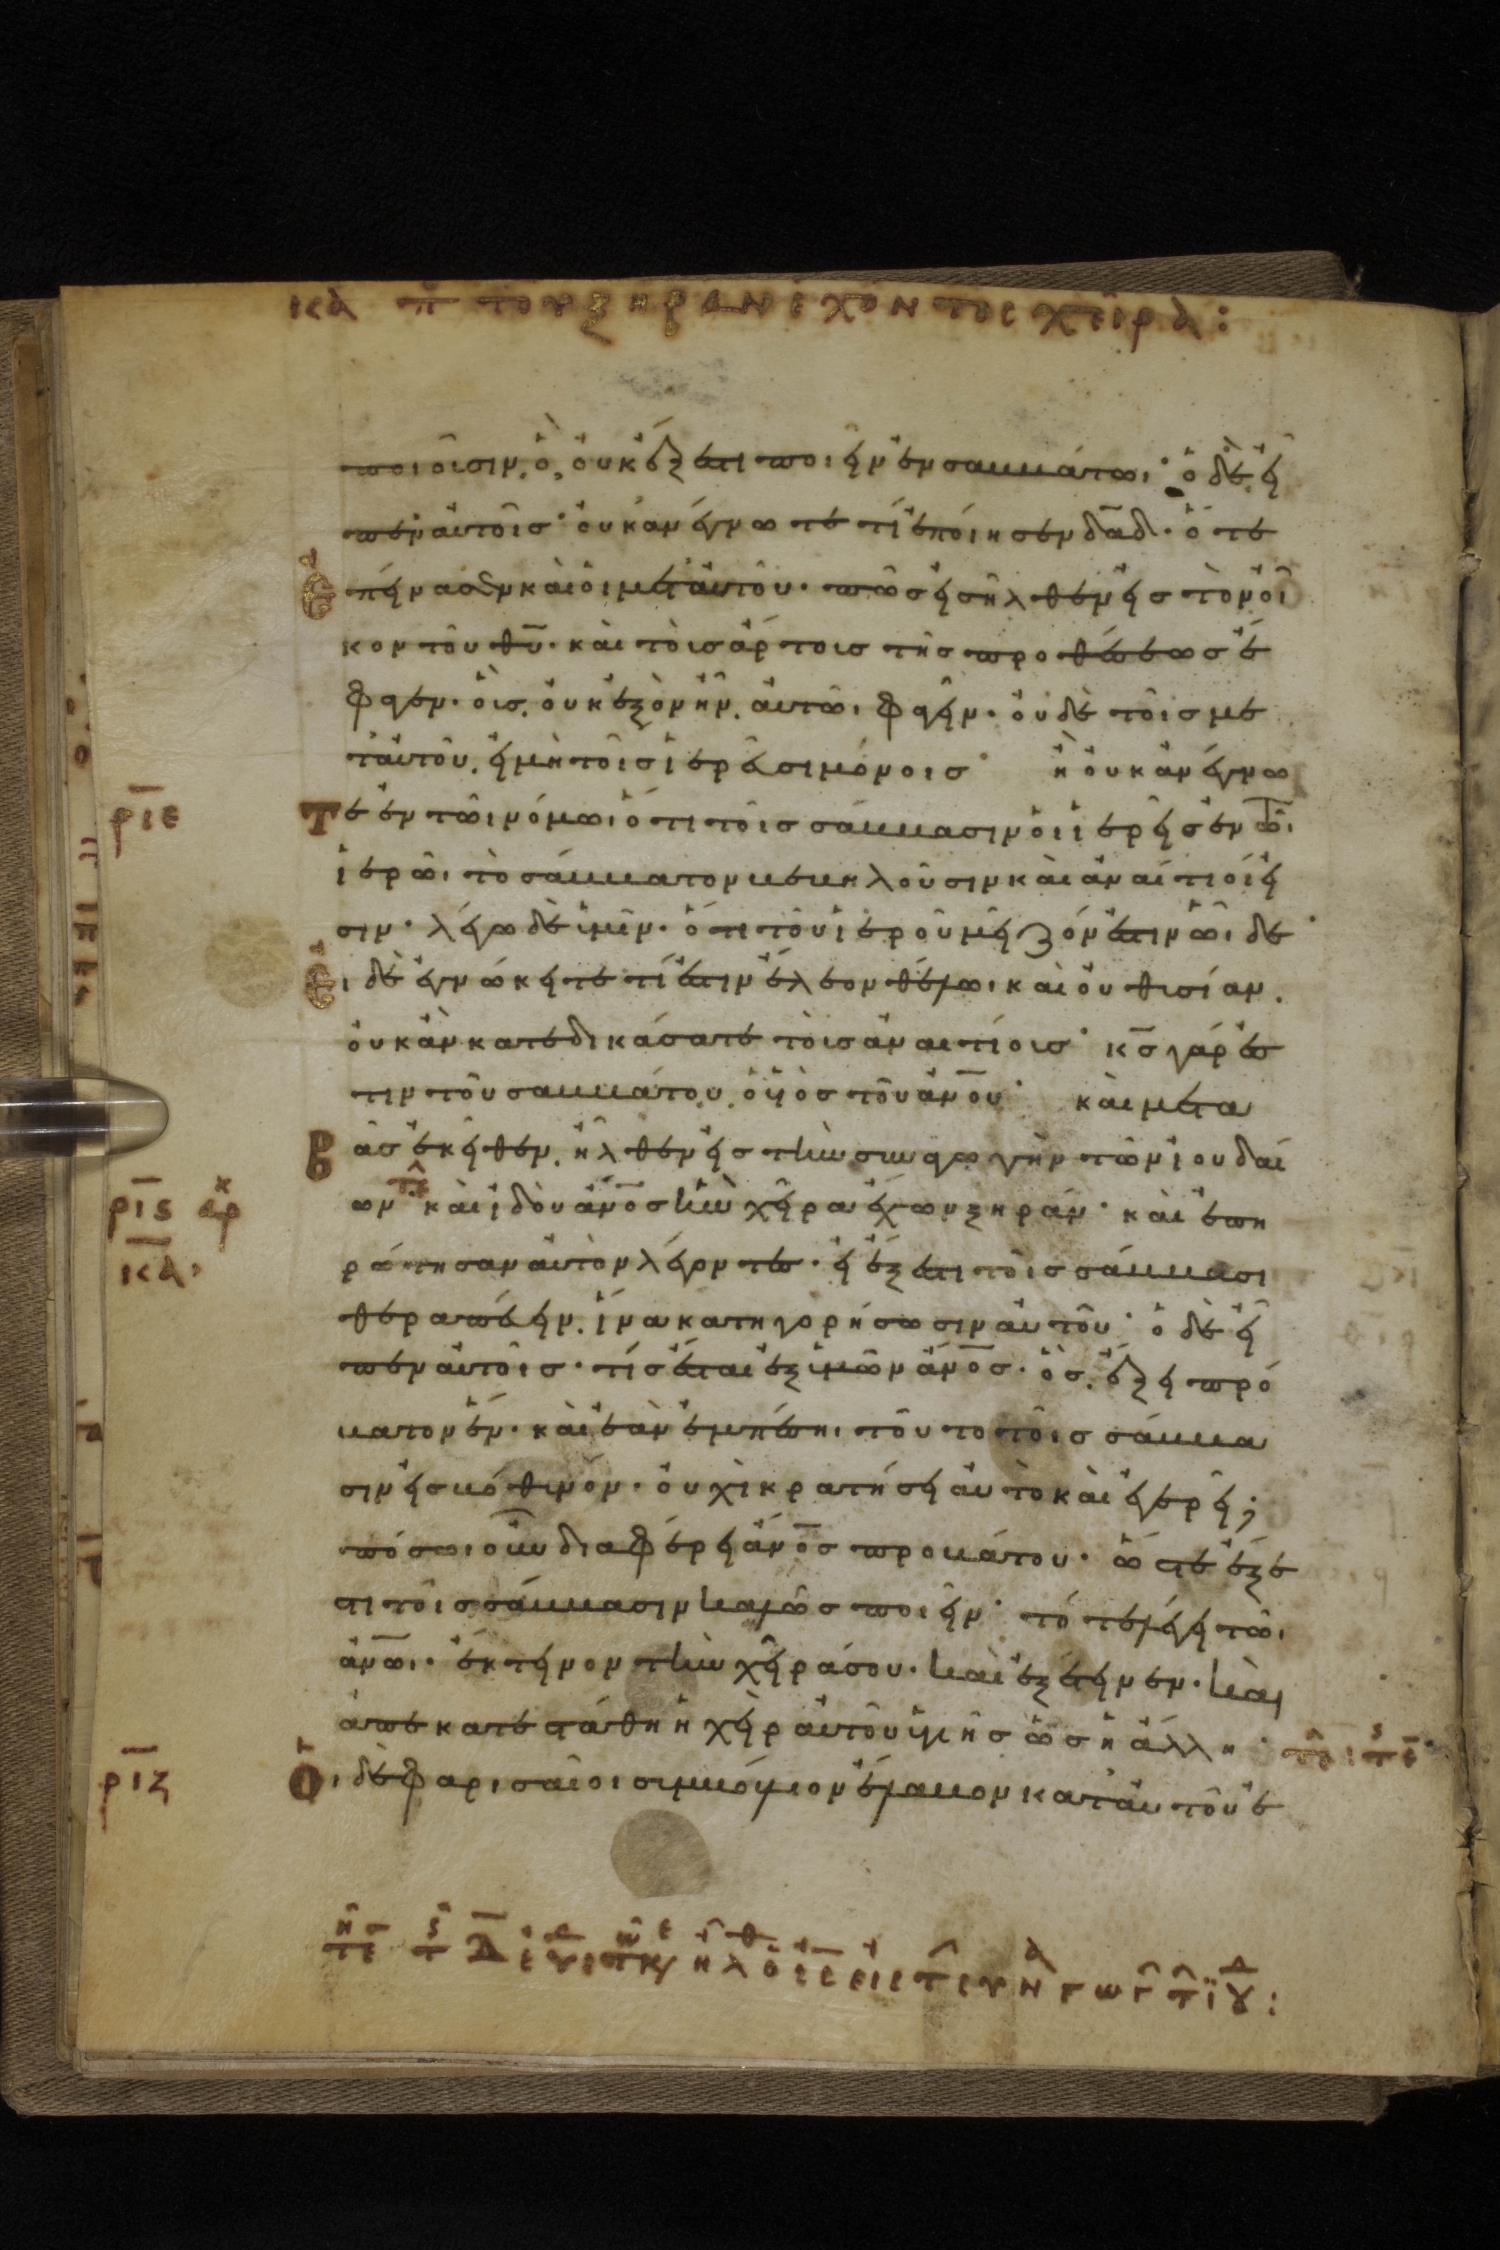 κα π τοῦ ξηρὰν ἔχοντος χεῖρα:
ποιοῦσιν, ὃ, οὐκ ἔξεστι ποιεῖν ἐν σαββάτωι· ὁ δὲ, εἶ
πεν αὐτοῖσ· οὐκ ἀνέγνωτε τί ἐποίησεν δαδ· ὅτε
ἐπείνασεν καὶ οἱ μετ' αὐτοῦ· πῶσ εἰσῆλθεν εἰσ τὸν οἶ
κον τοῦ θυ· καὶ τοὺσ ἄρτουσ τῆσ προθέσεωσ ἔ
φαγεν· οὓσ, οὐκ ἐξὸν ἦν, αὐτῶι φαγεῖν· οὐδὲ τοῖσ με
τ' αὐτοῦ, εἰ μὴ τοῖσ ἱερεῦσι μόνοισ· ἢ οὐκ ἀνέγνω
ριε
τε ἐν τῶι νόμωι ὅτι τοῖσ σάββασιν οἱ ἱερεῖσ ἐν τῶι
ἱερῶι τὸ σάββατον βεβηλοῦσιν καὶ ἀναίτιοί εἰ
σιν· λέγω δὲ ὑμῖν· ὅτι τοῦ ἱεροῦ μεῖζόν ἐστιν ὧδε·
εἰ δὲ ἐγνώκειτε τί ἐστιν ἔλεον θέλω καὶ οὐ θυσίαν,
οὐκ ἂν κατεδικάσατε τοὺσ ἀναιτίουσ· κσ γάρ ἐσ
τιν τοῦ σαββάτου, ὁ υἱὸσ τοῦ ανου· καὶ μετα
βὰσ ἐκεῖθεν, ἦλθεν εἰσ τὴν συναγωγὴν τῶν ἰουδαί
ρις αρ
ων· καὶ ἰδοὺ ανοσ ἦν χεῖρα ἔχων ξηράν· καὶ ἐπη
κα
ρώτησαν αὐτὸν λέγοντεσ· εἰ ἔξεστι τοῖσ σάββασι
θεραπεύειν, ἵνα κατηγορήσωσιν αὐτοῦ· ὁ δὲ εἶ
πεν αὐτοῖσ· τίσ ἔσται ἐξ ὑμῶν ανοσ· ὃσ, ἕξει πρό
βατον ἕν· καὶ ἐὰν ἐμπέση τοῦτο τοῖσ σάββα
σιν εἰσ βόθυνον· οὐχὶ κρατήσει αὐτὸ καὶ ἐγερεῖ;
πόσωι οὖν διαφέρει ανοσ προβάτου· ὥστε ἔξε
στι τοῖσ σάββασιν καλῶσ ποιεῖν· τότε λέγει τῶι
ανωι· ἔκτεινον τὴν χεῖρά σου· καὶ ἐξέτεινεν· καὶ
ἀπεκατεστάθη ἡ χεὶρ αὐτοῦ ὑγιὴσ ὡσ ἡ ἄλλη·
ριζ
Οἱ δὲ φαρισαῖοι συμβούλιον ἔλαβον κατ' αὐτοῦ ἐ